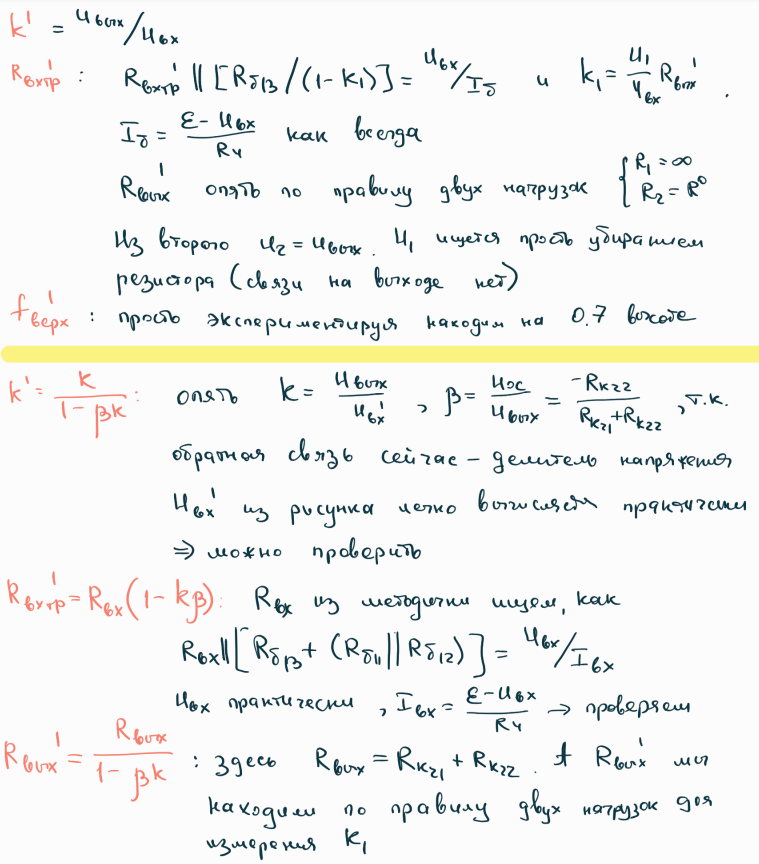 k' = Uвых/Uвх
Rвхтр' : Rвхтр' || [Rδ13 / (1-k1)] = Uвх/Iδ и k1 = U1/Uвх Rвых' .
Iδ = (ε - Uвх)/Rч как всегда
Rвых' опять по правилу двух нагрузок { R1 = ∞
R2 = R⁰
Из второго U2 = Uвых. U1 ищется просто убиранием
резистора (связи на выходе нет)
fверх' : просто экспериментируя находим на 0.7 высоте
k' = k/(1 - βk) : опять k = Uвых/Uвх' , β = Uос/Uвых = -Rк22/(Rк21 + Rк22) , т.к.
обратная связь сейчас – делитель напряжения
Uвх' из рисунка легко вычисляем практически
⇒ можно проверить
Rвхтр' = Rвх(1 - kβ) : Rвх из методички ищем, как
Rвх || [Rδ13 + (Rδ11 || Rδ12)] = Uвх/Iвх
Uвх практически , Iвх = (ε - Uвх)/Rч → проверяем
Rвых' = Rвых/(1 - βk) : здесь Rвых = Rк21 + Rк22 . А Rвых' мы
находим по правилу двух нагрузок для
измерения k1